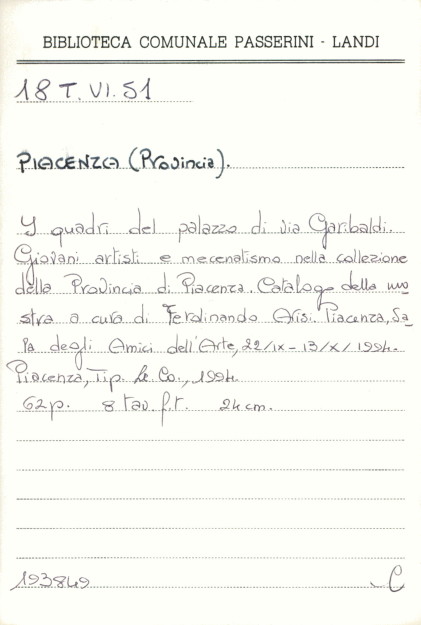 BIBLIOTECA COMUNALE PASSERINI - LANDI
18 T. VI. 51
PIACENZA (Provincia).
I quadri del palazzo di via Garibaldi.
Giovani artisti e mecenatismo nella collezione
della Provincia di Piacenza. Catalogo della mo
stra a cura di Ferdinando Arisi. Piacenza, Sa_
la degli Amici dell'Arte, 22/IX - 13/X/1994.
Piacenza, Tip. Le.Co., 1994.
62 p. 8 tav. f.t. 24 cm.
193849 C